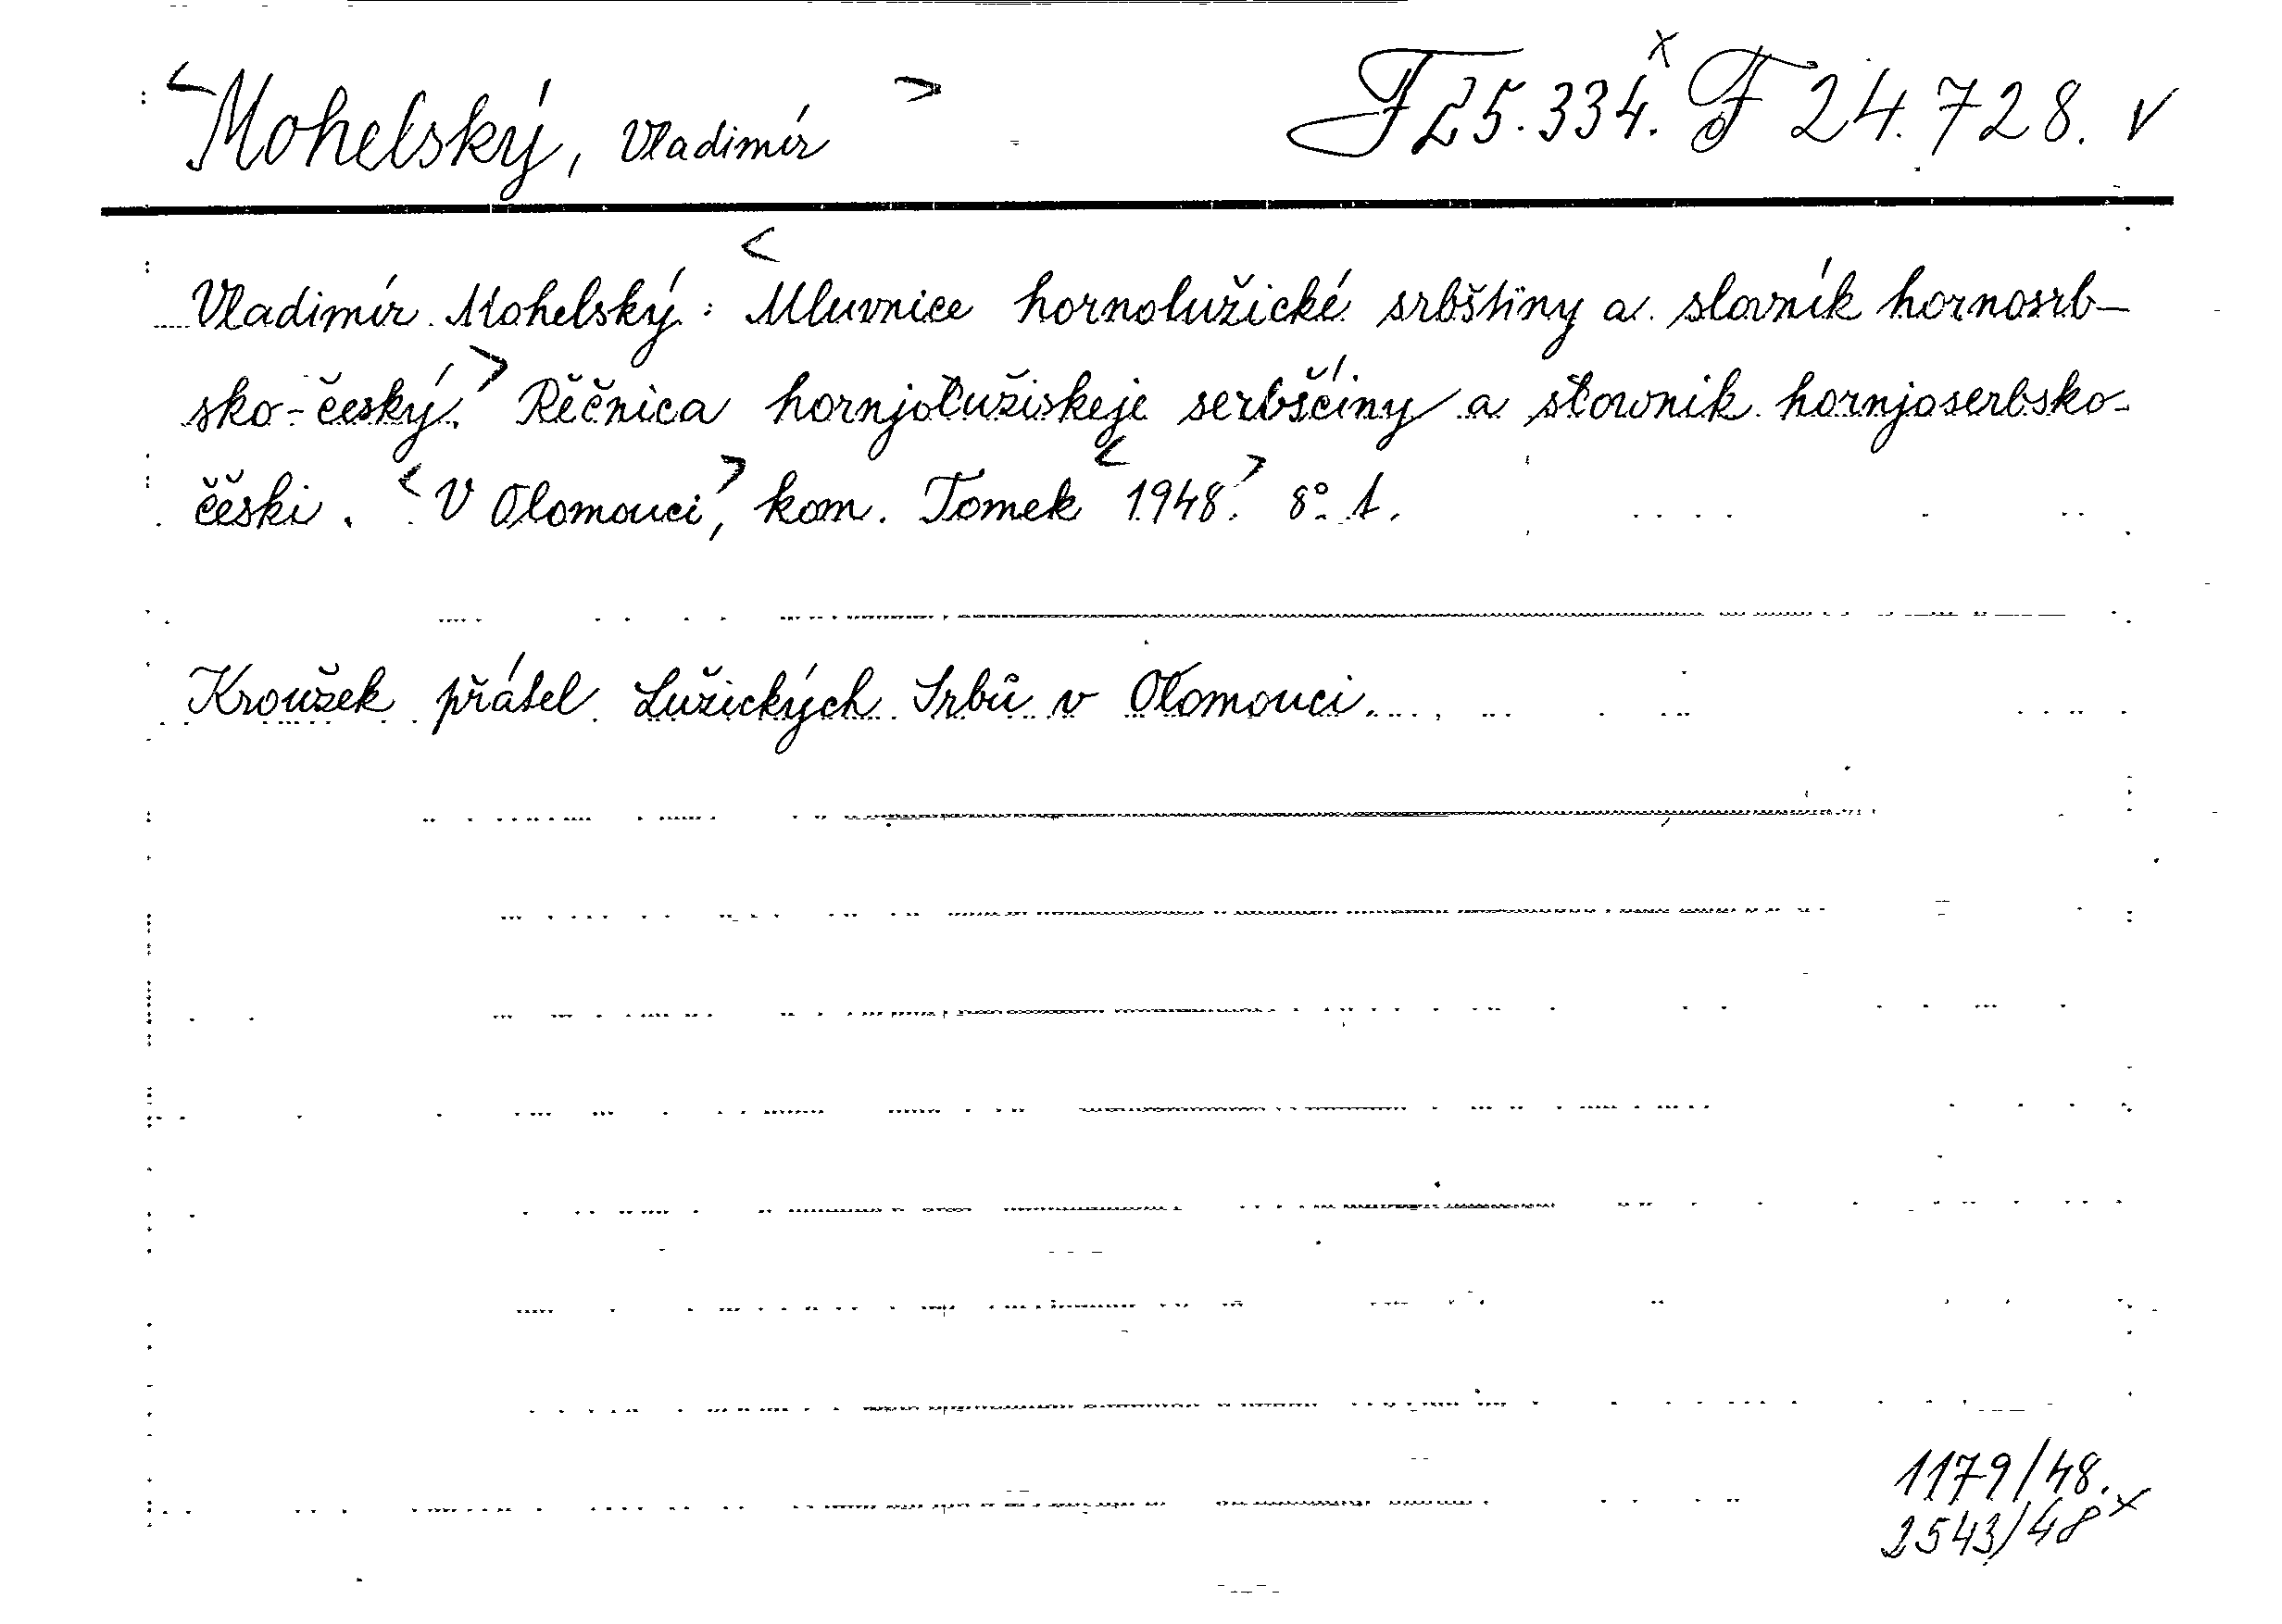 <Mohelský, Vladimír> F 25.334.x F 24.728. v
Vladimír Mohelský: <Mluvnice hornolužické srbštiny a slovník hornosrb-
sko-český.> Rěčnica hornjołužiskeje serbšćiny a słownik hornjoserbsko-
čěski. <V Olomouci>, kom. Tomek <1948>. 8°. 1.
Kroužek přátel Lužických Srbů v Olomouci.
1179/48.
2543/48 x